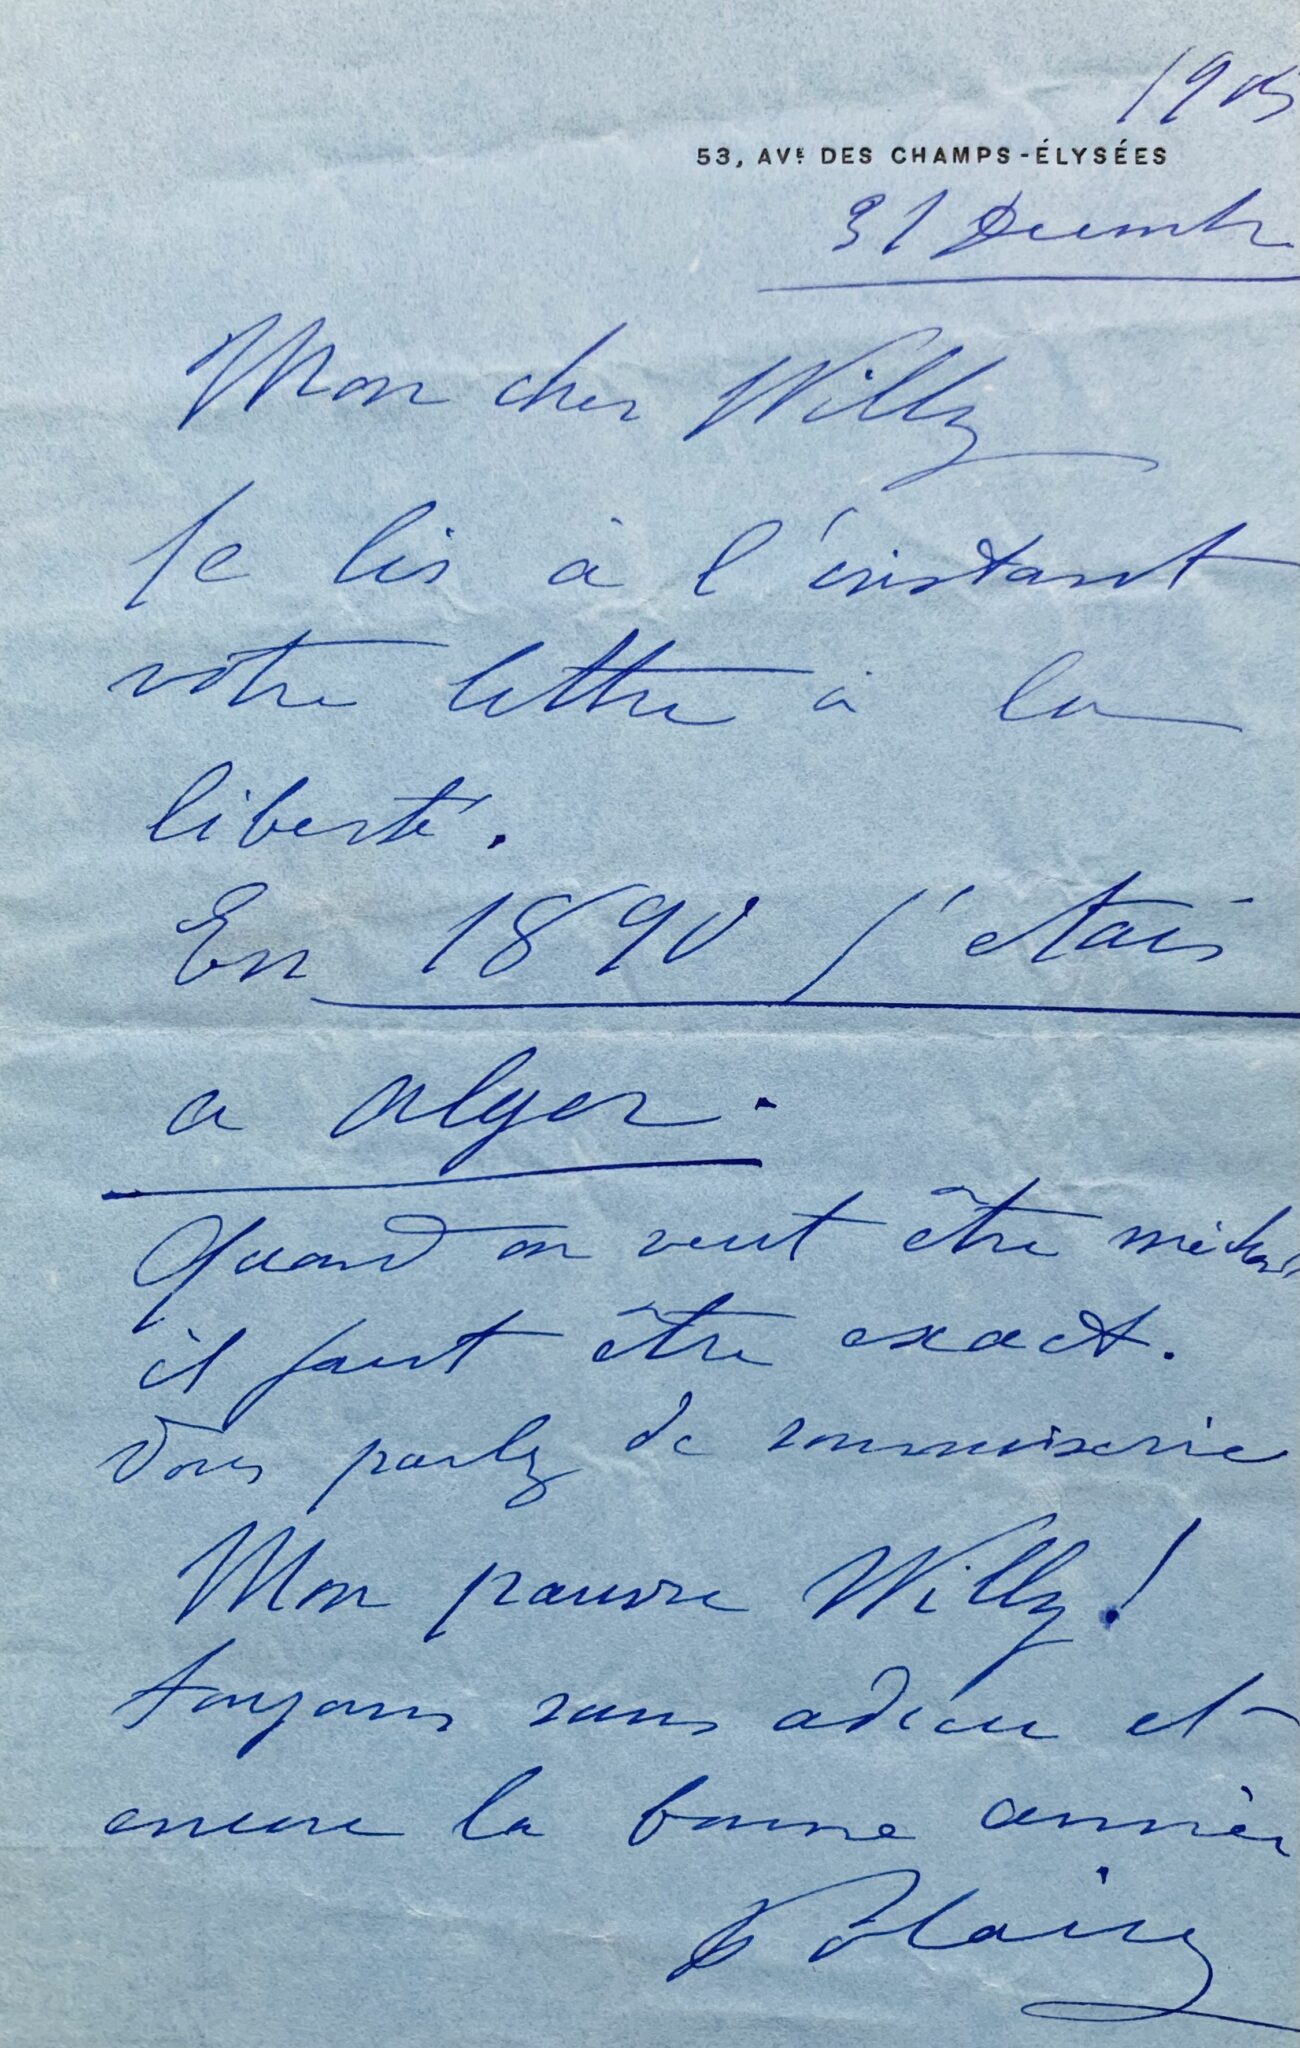 1905
53, AVE DES CHAMPS-ÉLYSÉES
31 Decembre
Mon cher Willy
Je lis à l'instant
votre lettre à la
liberté.
En 1890 j'étais
a Alger.
Quand on veut être méchant
il faut être exact.
Vous parlez de
Mon pauvre Willy!
toujours sans adieu et
encore la bonne année
Polaire